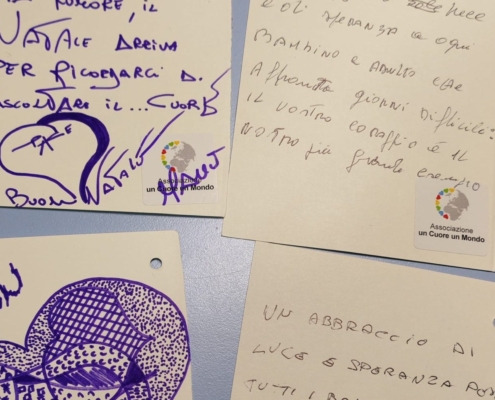 RUMORE, IL
NATALE ARRIVA
PER RICORDARCI DI
ASCOLTARE IL... CUORE
BUON NATALE
Associazione
un Cuore un Mondo
pace
e di speranza a ogni
bambino e adulto che
affronta giorni difficili:
il vostro coraggio è il
nostro più grande esempio
Associazione
un Cuore un Mondo
UN ABBRACCIO DI
LUCE E SPERANZA PER
TUTTI I